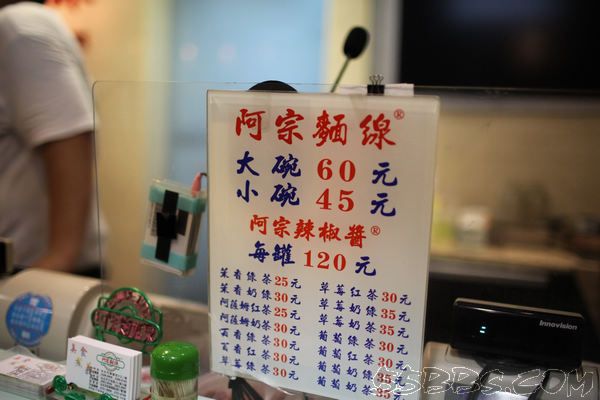 阿宗麵線®
大碗 60 元
小碗 45 元
阿宗辣椒醬®
每罐 120 元
茉香綠茶25元
茉香奶綠30元
阿薩姆紅茶25元
阿薩姆奶茶30元
草莓綠茶30元
草莓紅茶30元
草莓奶綠35元
草莓奶茶35元
葡萄綠茶30元
葡萄紅茶30元
葡萄奶綠35元
葡萄奶茶35元
美食
Innovision
55BBS.COM